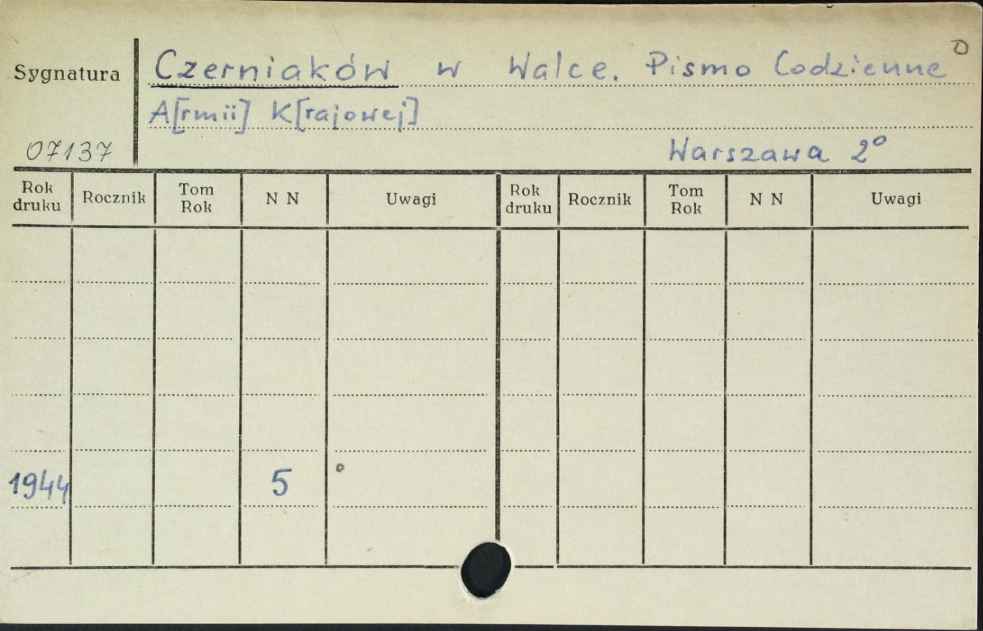 Sygnatura
Czerniaków w Walce. Pismo Codzienne
A[rmii] K[rajowej]
07137
Warszawa 2°
Rok druku Rocznik Tom Rok N N Uwagi Rok druku Rocznik Tom Rok N N Uwagi
1944 5